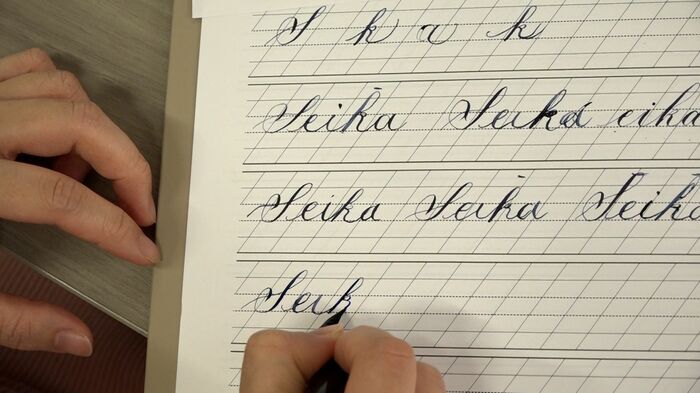 S k a k
Seika Seika eika
Seika Seika Seika
Seik